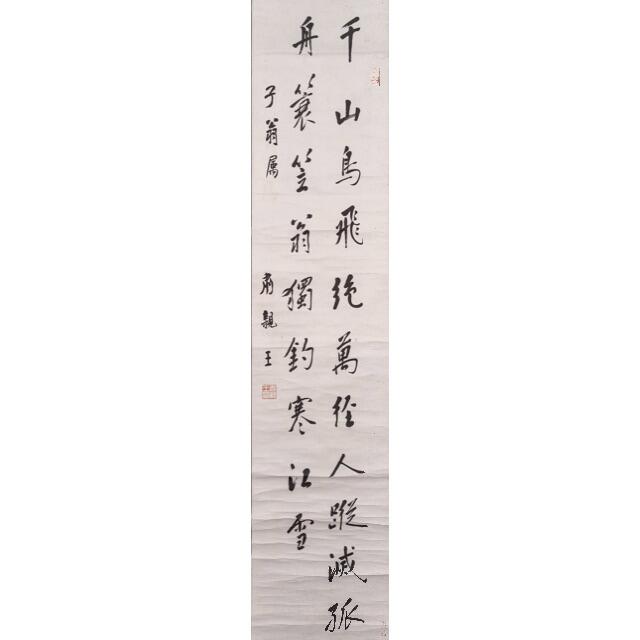 千山鳥飛絶萬徑人蹤滅孤
舟簑笠翁獨釣寒江雪
子翁属
肅親王